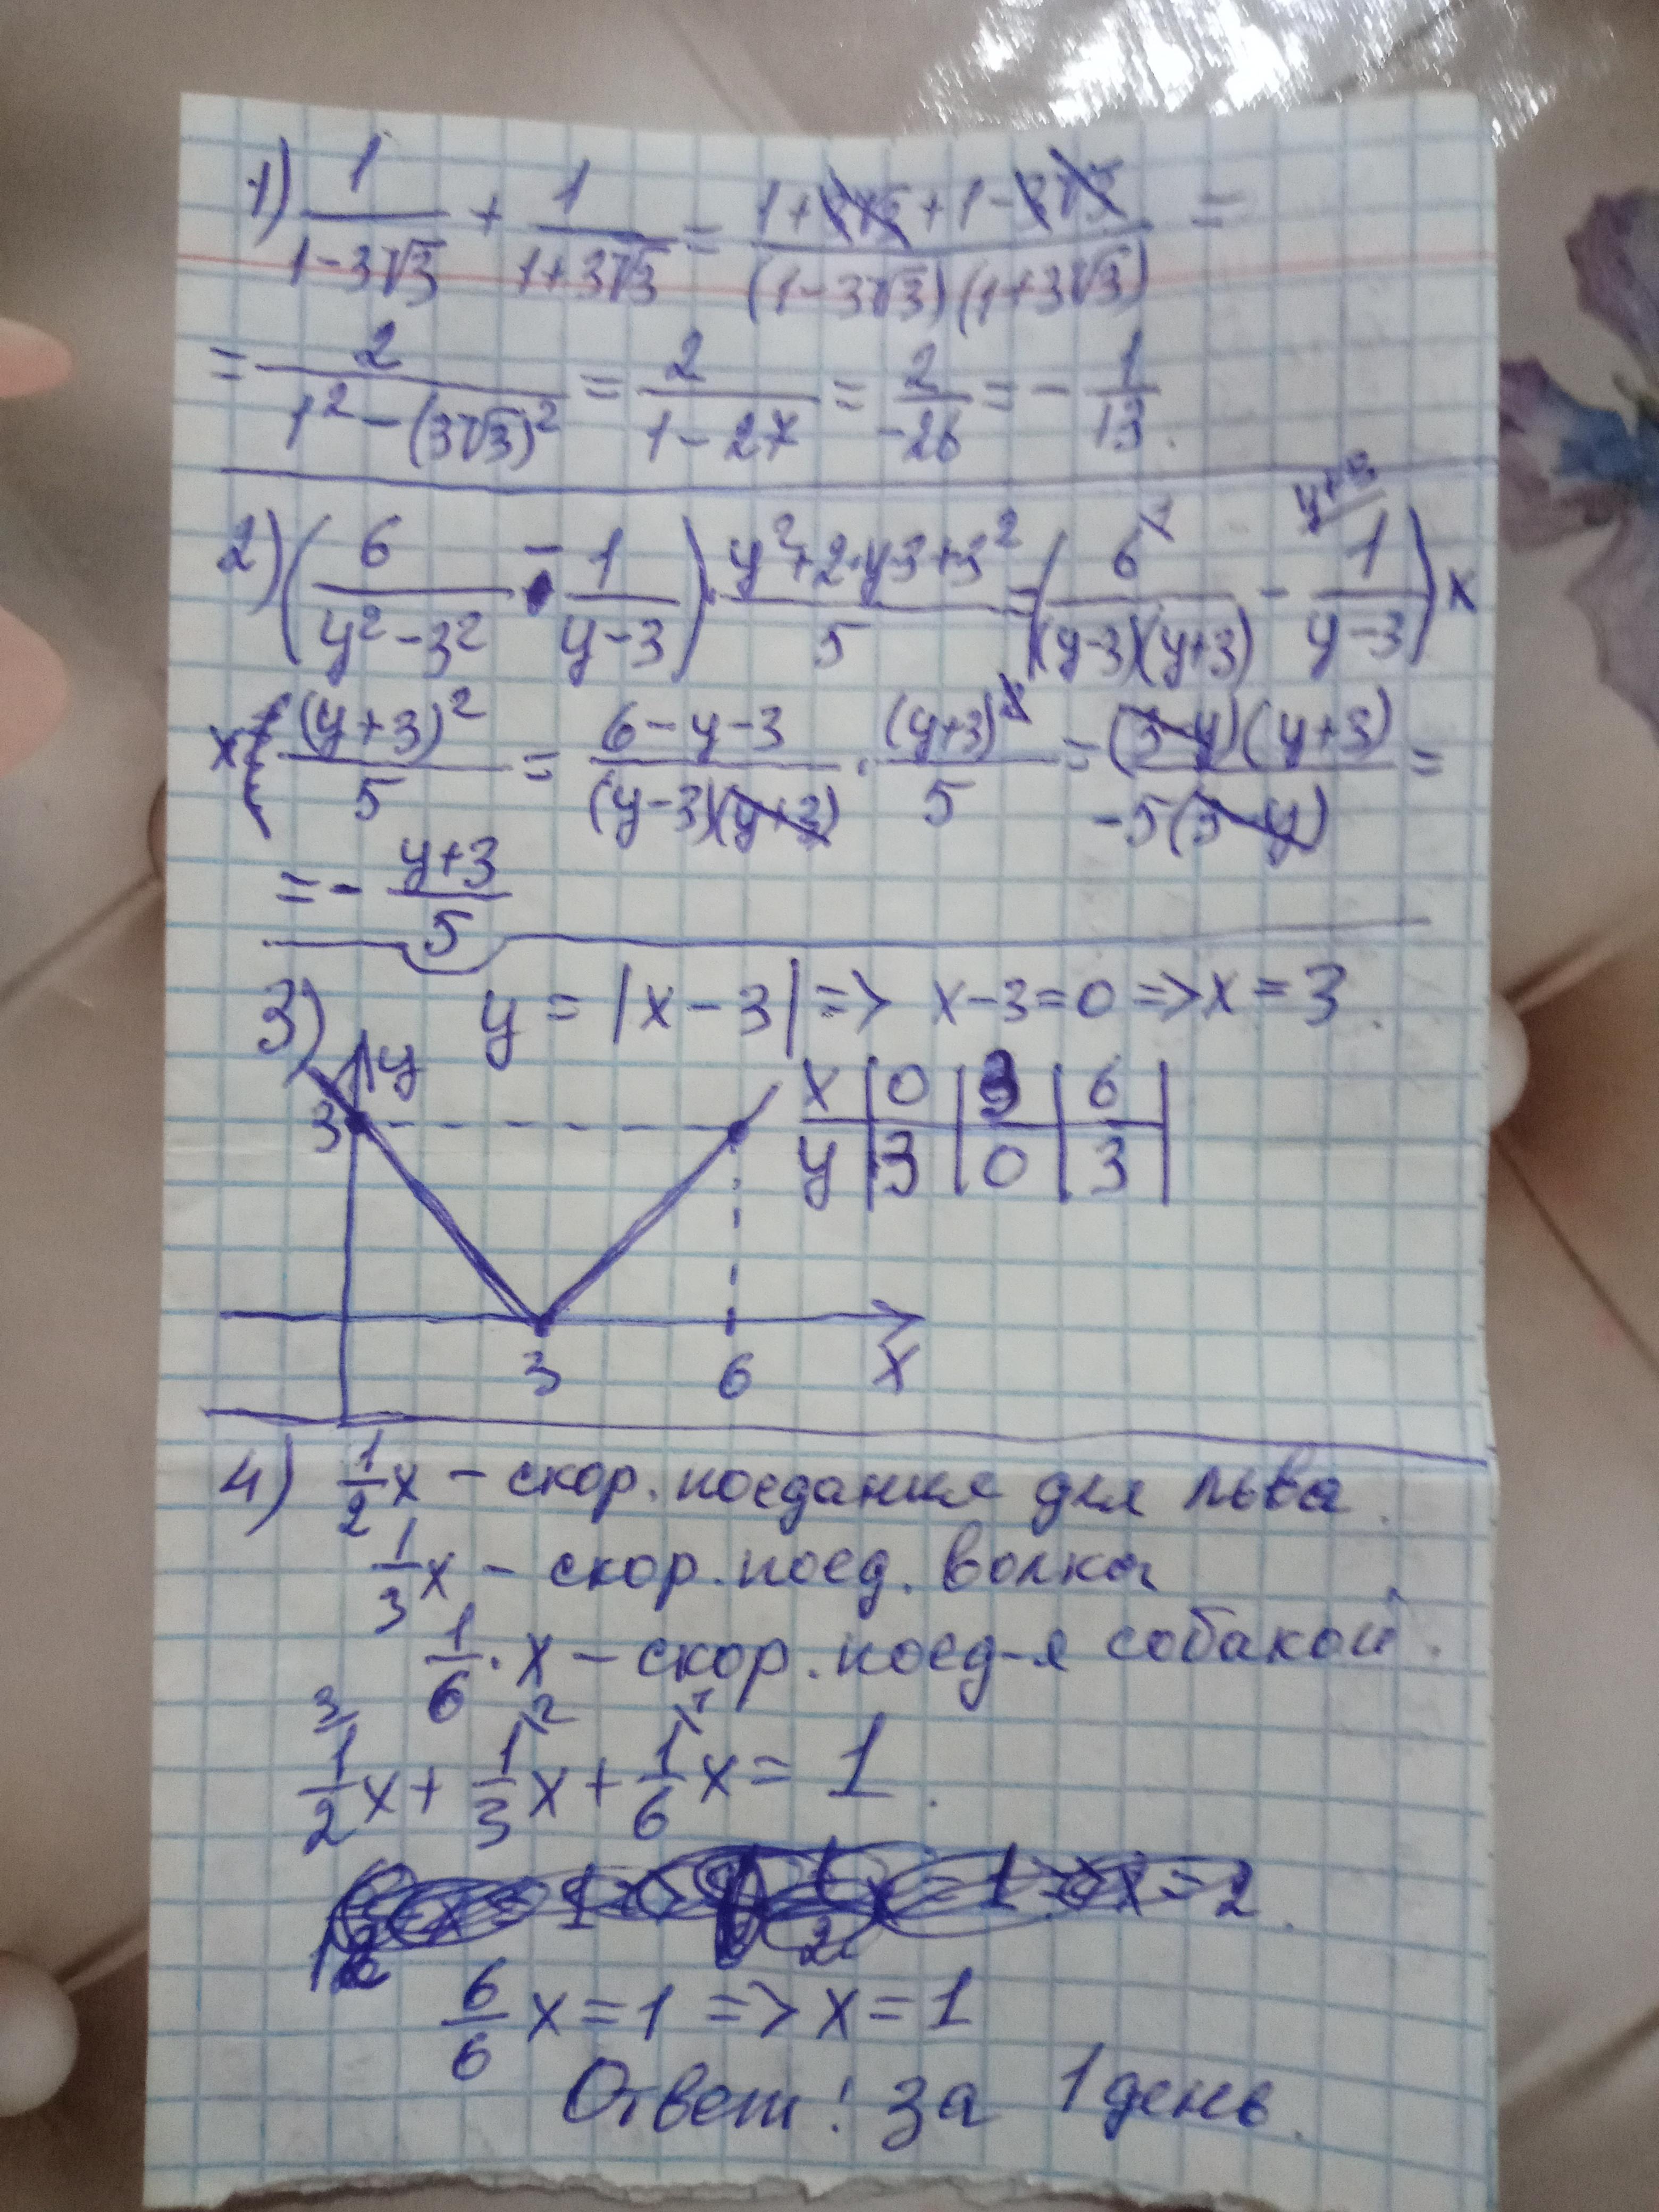 1) 1/(1-3√3) + 1/(1+3√3) = (1+3√3+1-3√3)/((1-3√3)(1+3√3)) =
= 2/(1²-(3√3)²) = 2/(1-27) = 2/-26 = - 1/13.
2) (6/(y²-3²) - 1/(y-3)) · (y²+2·y·3+3²)/5 = (6/((y-3)(y+3)) - 1/(y-3)) x
x (y+3)²/5 = (6-y-3)/((y-3)(y+3)) · (y+3)²/5 = (3-y)(y+3)/(-5(3-y)) =
= - (y+3)/5
3) y = |x-3| => x-3=0 => x=3.
y
3
x | 0 | 3 | 6 |
y | 3 | 0 | 3 |
3 6 x
4) 1/2 x - скор. поедания для льва.
1/3 x - скор. поед. волка
1/6 · x - скор. поед-я собакой.
3 2 1
1/2 x + 1/3 x + 1/6 x = 1.
x = 2.
6/6 x = 1 => x = 1
Ответ: за 1 день.